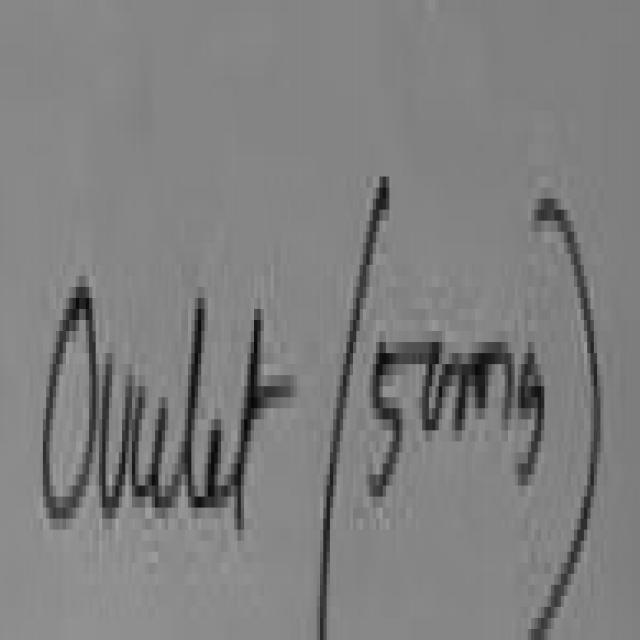 Ovulet (50mg)